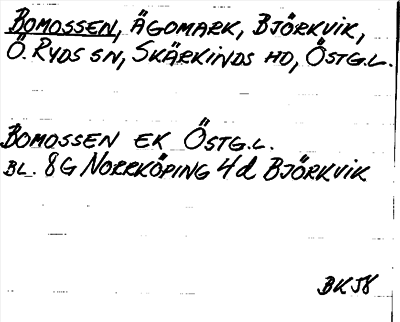 BOMOSSEN, ÄGOMARK, BJÖRKVIK,
Ö. RYDS SN, SKÄRKINDS HD, ÖSTG.L.
BOMOSSEN EK ÖSTG.L.
BL. 8G NORRKÖPING 4d BJÖRKVIK
BK58